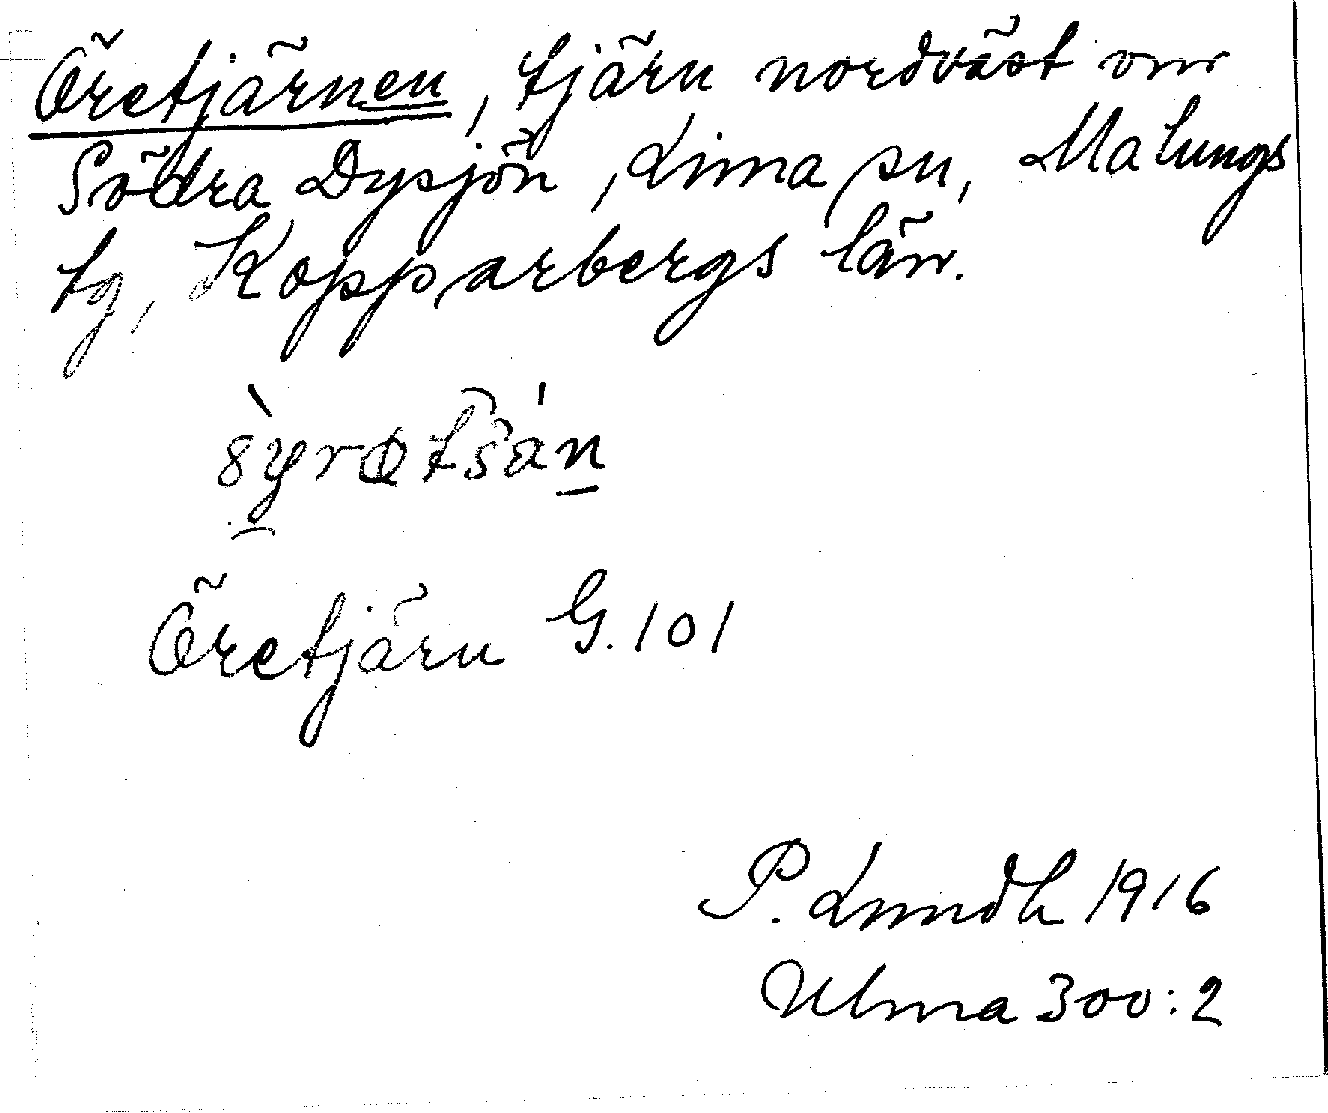 Öretjärnen, tjärn nordväst om
Södra Dysjön, Lima sn, Malungs
tg, Kopparbergs län.
Öretjärn G. 101
P. Lundh 1916
Ulma 300:2